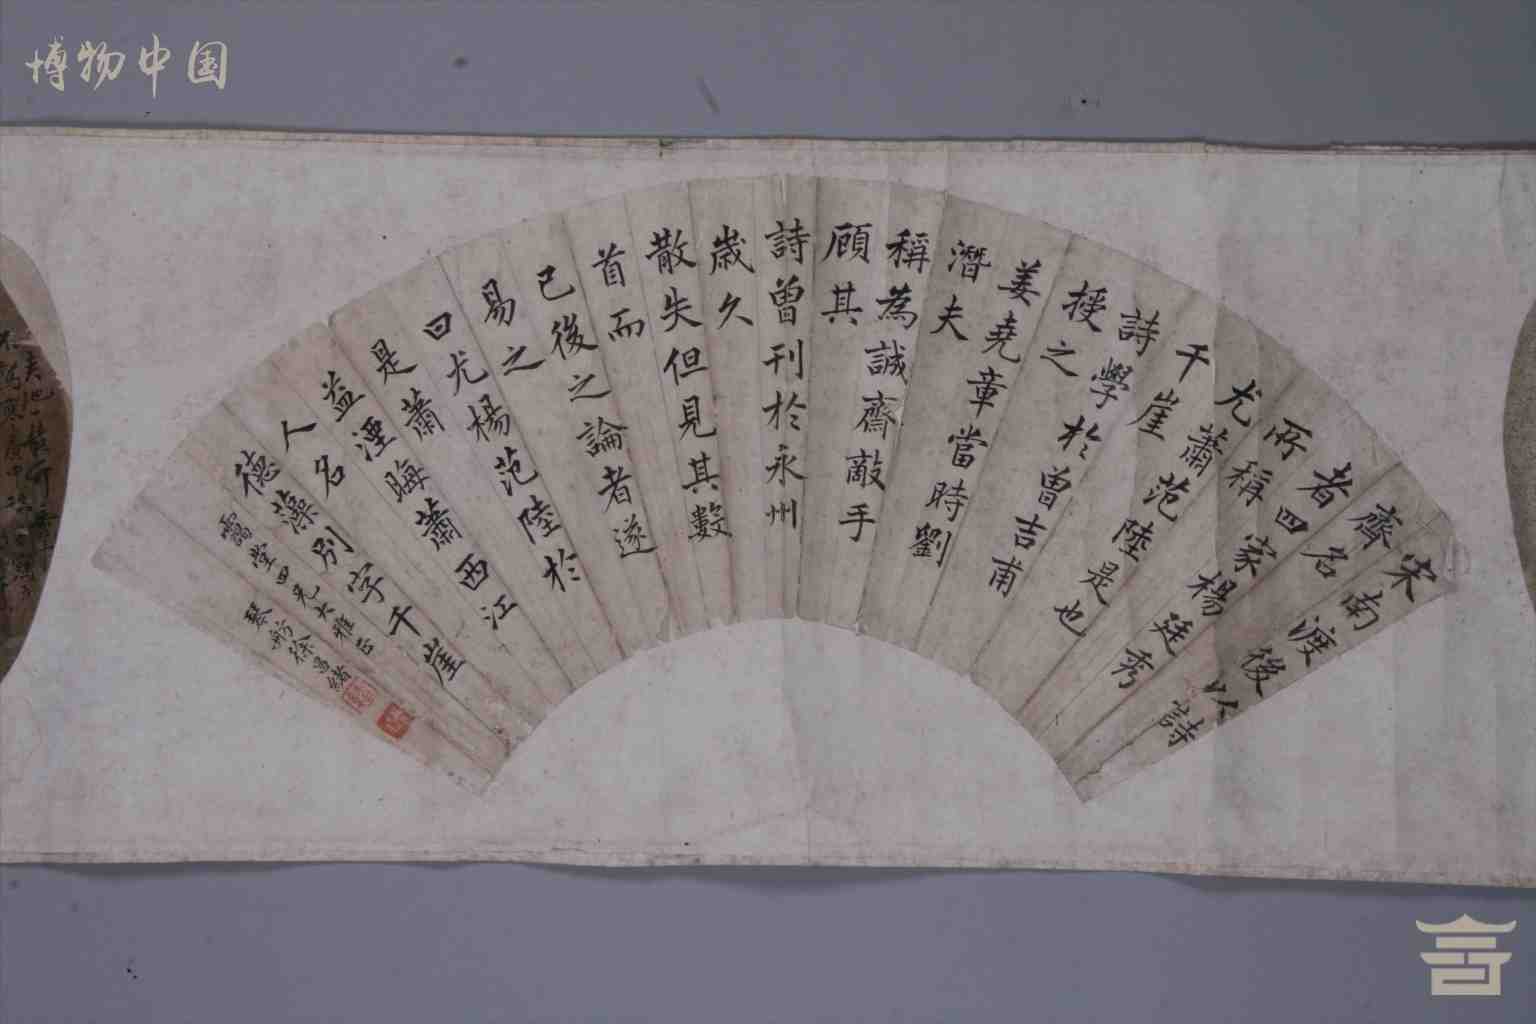 博物中国
宋南渡後以詩
齊名
者四家楊廷秀
所稱
尤蕭范陸是也
千崖
詩學於曾吉甫
授之
姜堯章當時劉
潛夫
稱為誠齋敵手
顧其
詩曾刊於永州
歲久
散失但見其數
首而
已後之論者遂
易之
曰尤楊范陸於
是蕭
益湮晦蕭西江
人名
德藻別字千崖
靄堂四兄大雅正
琴舫徐昌緒